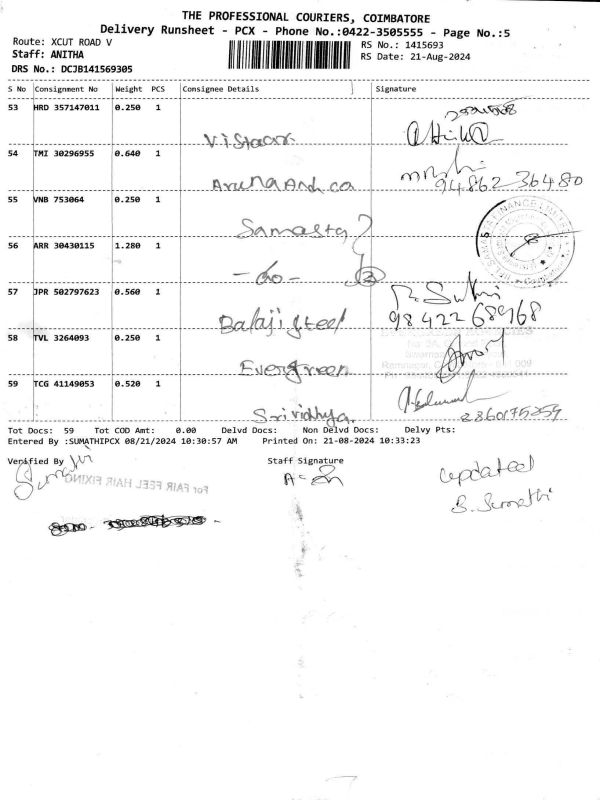 THE PROFESSIONAL COURIERS, COIMBATORE
Delivery Runsheet - PCX - Phone No.:0422-3505555 - Page No.:5
Route: XCUT ROAD V
RS No.: 1415693
Staff: ANITHA
RS Date: 21-Aug-2024
DRS No.: DCJB141569305
S No Consignment No Weight PCS Consignee Details Signature
53 HRD 357147011 0.250 1
Vistaar
54 TMI 30296955 0.640 1
Aruna And co
94862 36480
55 VNB 753064 0.250 1
Samasta
56 ARR 30430115 1.280 1
- do - 2
57 JPR 502797623 0.560 1
R. Sumathi
Balaji steel
98422 68968
58 TVL 3264093 0.250 1
Evergreen
59 TCG 41149053 0.520 1
Srividhya
Tot Docs: 59 Tot COD Amt: 0.00 Delvd Docs: Non Delvd Docs: Delvy Pts:
Entered By :SUMATHIPCX 08/21/2024 10:30:57 AM Printed On: 21-08-2024 10:33:23
Verified By Staff Signature
Sumathi
updated
For FAIR FEEL HAIR FIXING
S. Sumathi